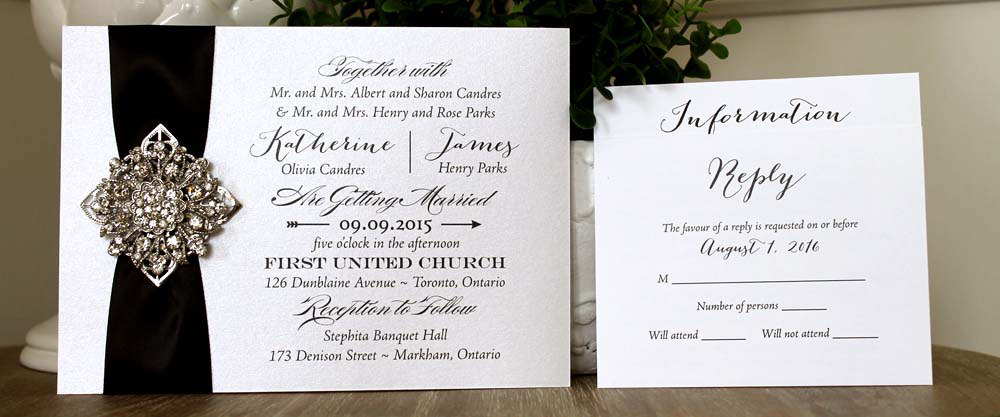 Together with
Mr. and Mrs. Albert and Sharon Candres
& Mr. and Mrs. Henry and Rose Parks
Katherine | James
Olivia Candres Henry Parks
Are Getting Married
09.09.2015
five o'clock in the afternoon
FIRST UNITED CHURCH
126 Dunblaine Avenue ~ Toronto, Ontario
Reception to Follow
Stephita Banquet Hall
173 Denison Street ~ Markham, Ontario
Information
Reply
The favour of a reply is requested on or before
August 1, 2016
M
Number of persons
Will attend Will not attend